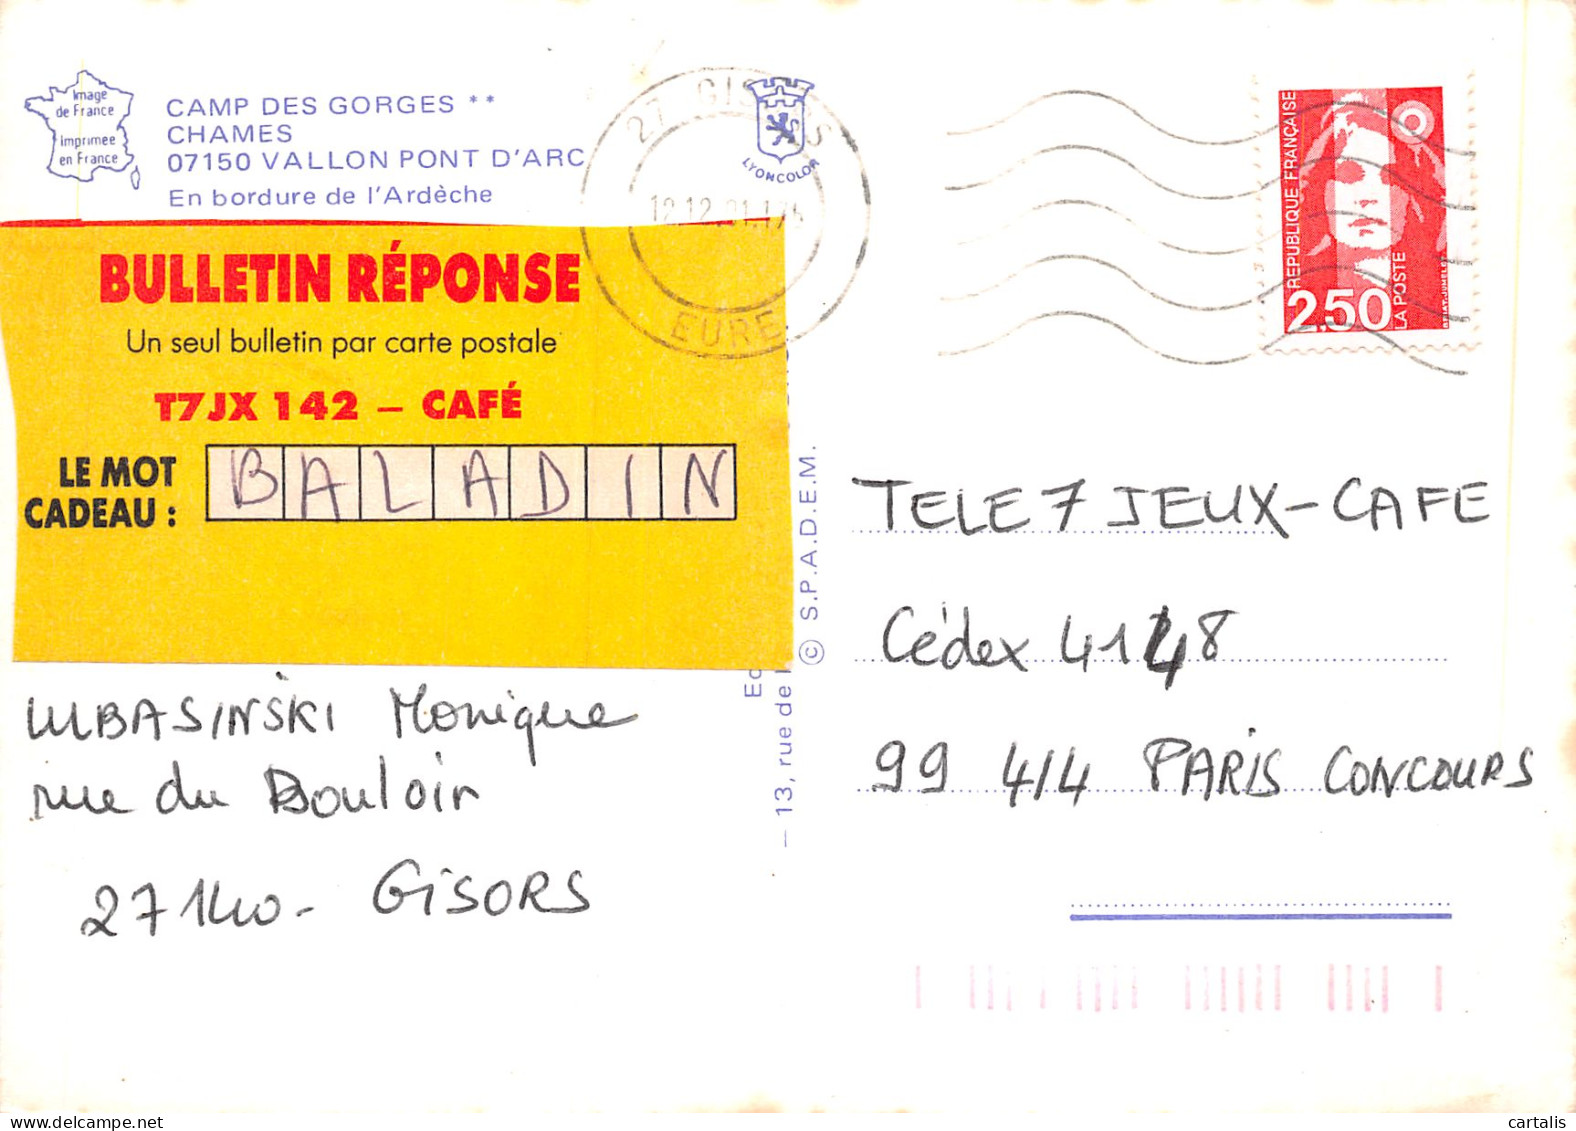 Image
de France
Imprimée
en France
CAMP DES GORGES **
CHAMES
07150 VALLON PONT D'ARC
En bordure de l'Ardèche
27 GISORS
EURE
LYONCOLOR
REPUBLIQUE FRANÇAISE
2,50
LA POSTE
BULLETIN RÉPONSE
Un seul bulletin par carte postale
T7JX 142 – CAFÉ
LE MOT
CADEAU :
BALADIN
LUBASINSKI Monique
rue du Bouloir
27140 - GISORS
© S.P.A.D.E.M.
— 13, rue de
TELE 7 JEUX - CAFE
Cédex 4148
99 414 PARIS CONCOURS
cartalis